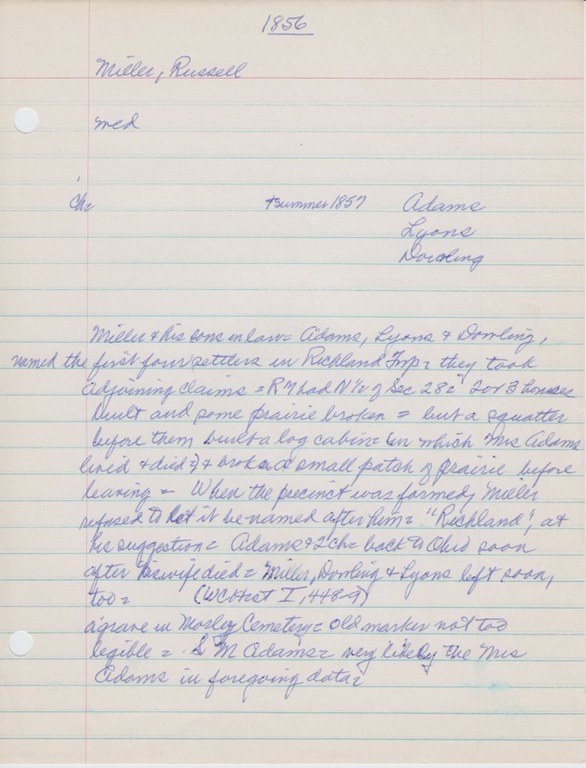 1856
Miller, Russell
med
ch= +summer 1857 Adams
Lyons
Dowling
Miller & his sons in law= Adams, Lyons & Dowling,
named the first four settlers in Richland Twp= they took
adjoining claims = RM had N½ of Sec 28= 2 or 3 houses
built and some prairie broken = but a squatter
before them built a log cabin= (in which Mrs Adams
livid & died=) & broke a small patch of prairie before
leaving = When the precinct was formed, Miller
refused to let it be named after him= "Richland", at
his suggestion= Adams & 2 ch= back to Ohio soon
after his wife died = Miller, Dowling & Lyons left soon,
too= (WCHist I, 448-9)
a grave in Morley Cemetery= old marker not too
legible = S M Adams= very likely the Mrs
Adams in foregoing data=